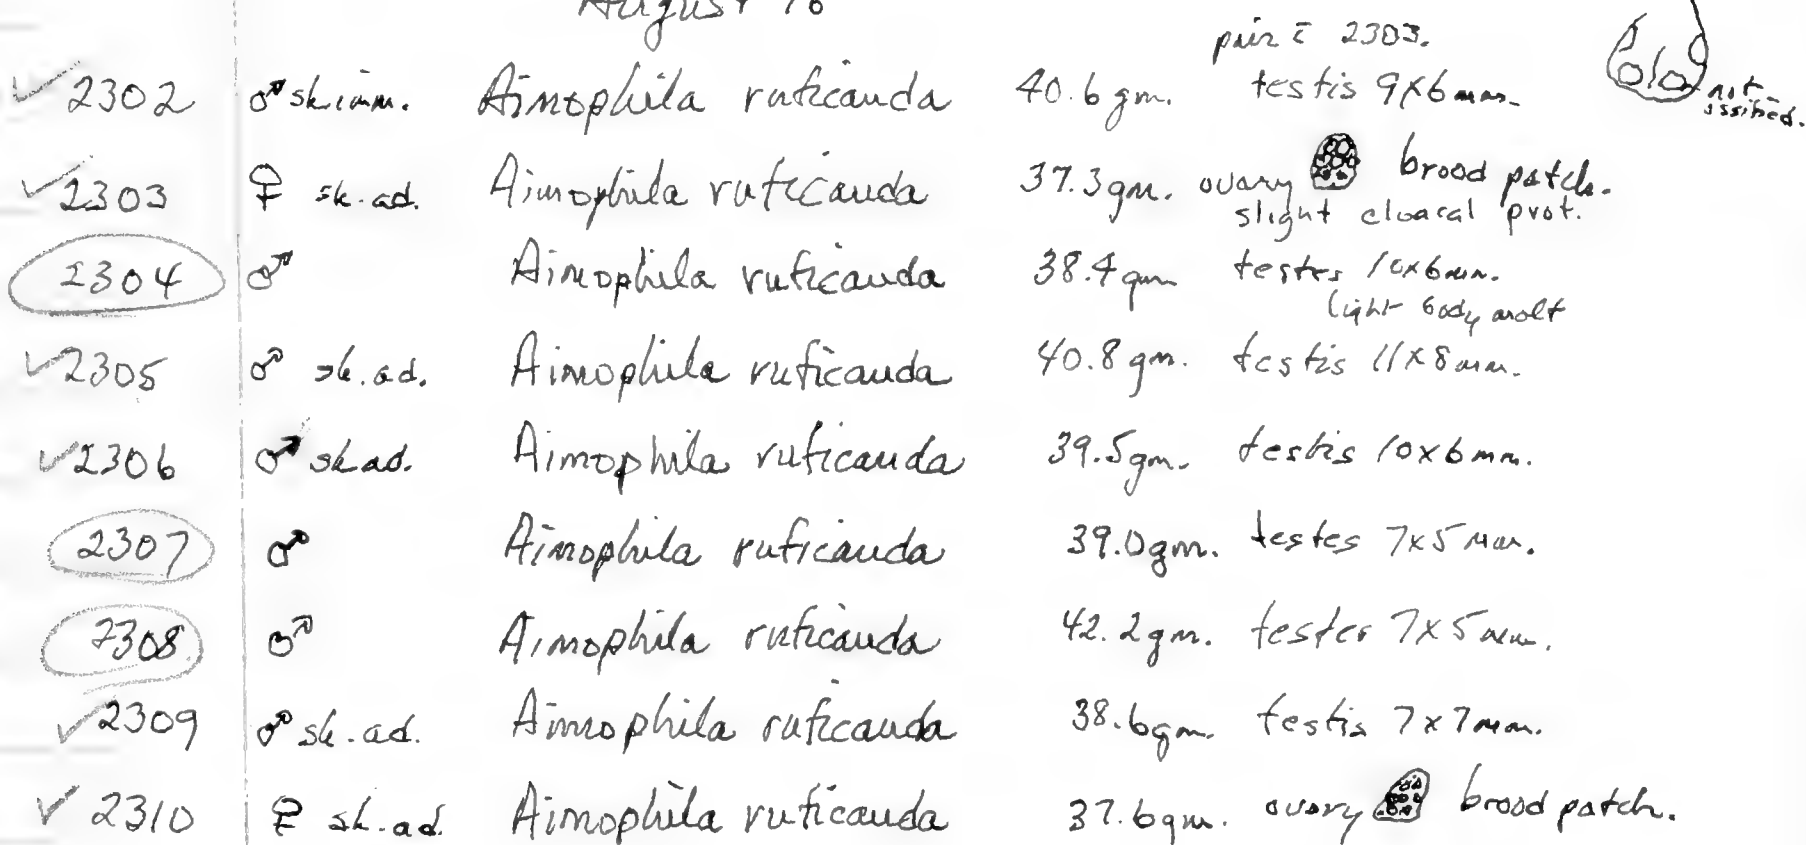 August 16
pair c̄ 2303.
✓2302 ♂ sk imm. Aimophila ruficauda 40.6 gm. testis 9x6mm.
not
ossified.
✓2303 ♀ sk. ad. Aimophila ruficauda 37.3gm. ovary brood patch.
slight cloacal prot.
2304 ♂ Aimophila ruficauda 38.4gm testes 10x6mm.
light body molt
✓2305 ♂ sk. ad. Aimophila ruficauda 40.8 gm. testis 11x8mm.
✓2306 ♂ sk ad. Aimophila ruficauda 39.5gm. testis 10x6mm.
2307 ♂ Aimophila ruficauda 39.0gm. testes 7x5mm.
2308 ♂ Aimophila ruficauda 42.2gm. testes 7x5mm.
✓2309 ♂ sk. ad. Aimophila ruficauda 38.6gm. testis 7x7mm.
✓2310 ♀ sk. ad. Aimophila ruficauda 37.6gm. ovary brood patch.